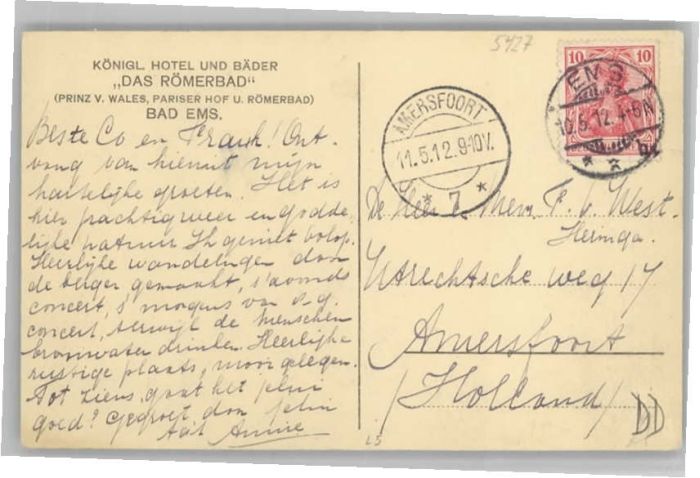 5427
KÖNIGL. HOTEL UND BÄDER
„DAS RÖMERBAD“
(PRINZ V. WALES, PARISER HOF U. RÖMERBAD)
BAD EMS.
Beste Co en Frank! Ont-
vang van hiermit mijn
hartelijke groeten. Het is
hier prachtig weer en godde-
lijke natuur Ik geniet volop.
Heerlijke wandelingen door
de bergen gemaakt, s'avonds
concert, s'morgens van 8-9
concert, terwijl de menschen
bronwater drinken Heerlijke
rustige plaats, mooi gelegen.
Tot ziens, gaat het
goed? Gegroet door
Annie
10 10
EMS
10.5.12. 4-5N
AMERSFOORT
11.5.12.9-10V.
* 7 *
De Heer & Mevr. F. v. West-
Heringa.
Utrechtsche weg 17
Amersfoort
/Holland/
L5
DD